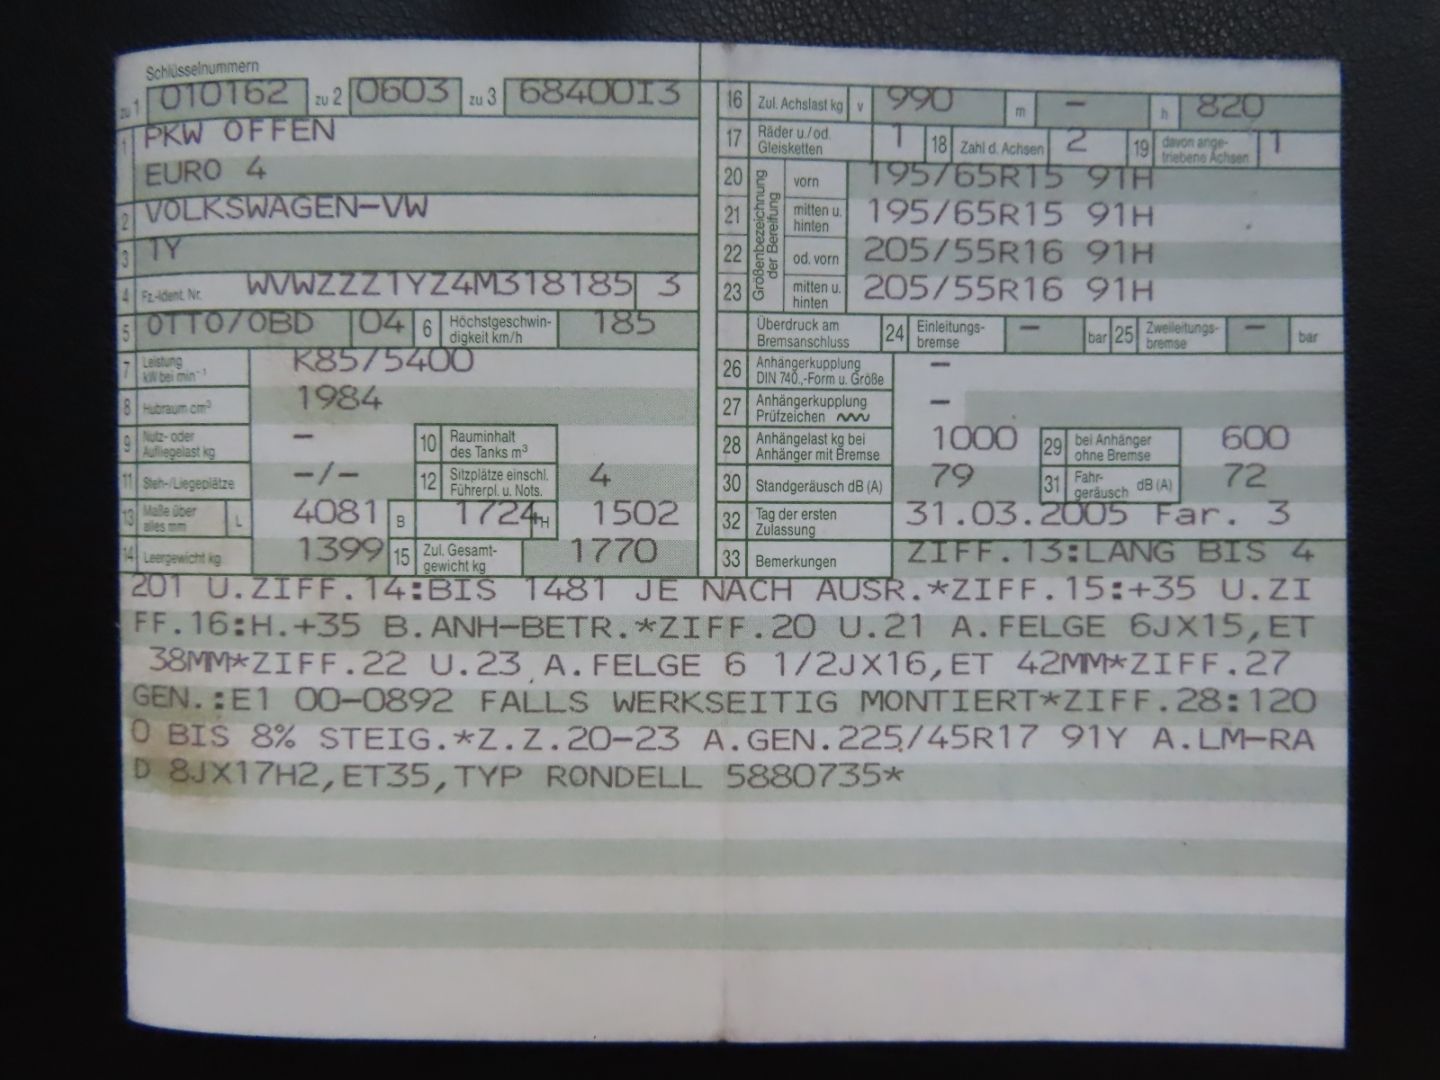 Schlüsselnummern
zu 1 010162 zu 2 0603 zu 3 68400I3
1 PKW OFFEN
EURO 4
2 VOLKSWAGEN-VW
3 1Y
4 Fz.-Ident. Nr. WVWZZZ1YZ4M318185 3
5 OTTO/OBD 04 6 Höchstgeschwin-
digkeit km/h 185
7 Leistung
kW bei min⁻¹ K85/5400
8 Hubraum cm³ 1984
9 Nutz- oder
Aufliegelast kg - 10 Rauminhalt
des Tanks m³
11 Steh-/Liegeplätze -/- 12 Sitzplätze einschl.
Führerpl. u. Nots. 4
13 Maße über
alles mm L 4081 B 1724 H 1502
14 Leergewicht kg 1399 15 Zul. Gesamt-
gewicht kg 1770
16 Zul. Achslast kg v 990 m - h 820
17 Räder u./od.
Gleisketten 1 18 Zahl d. Achsen 2 19 davon ange-
triebene Achsen 1
Größenbezeichnung
der Bereifung
20 vorn 195/65R15 91H
21 mitten u.
hinten 195/65R15 91H
22 od. vorn 205/55R16 91H
23 mitten u.
hinten 205/55R16 91H
Überdruck am
Bremsanschluss 24 Einleitungs-
bremse - bar 25 Zweileitungs-
bremse - bar
26 Anhängerkupplung
DIN 740.,-Form u. Größe -
27 Anhängerkupplung
Prüfzeichen -
28 Anhängelast kg bei
Anhänger mit Bremse 1000 29 bei Anhänger
ohne Bremse 600
30 Standgeräusch dB (A) 79 31 Fahr-
geräusch dB (A) 72
32 Tag der ersten
Zulassung 31.03.2005 Far. 3
33 Bemerkungen ZIFF.13:LANG BIS 4
201 U.ZIFF.14:BIS 1481 JE NACH AUSR.*ZIFF.15:+35 U.ZI
FF.16:H.+35 B.ANH-BETR.*ZIFF.20 U.21 A.FELGE 6JX15,ET
38MM*ZIFF.22 U.23 A.FELGE 6 1/2JX16,ET 42MM*ZIFF.27
GEN.:E1 00-0892 FALLS WERKSEITIG MONTIERT*ZIFF.28:120
0 BIS 8% STEIG.*Z.Z.20-23 A.GEN.225/45R17 91Y A.LM-RA
D 8JX17H2,ET35,TYP RONDELL 5880735*